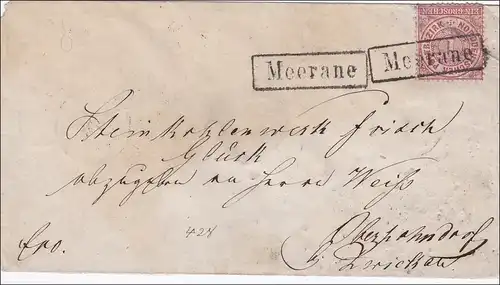 EIN GROSCHEN
NORDD.
Meerane Meerane
Steinkohlenwerk Frisch
Glück
abzugeben an Herrn Weiß
Oberhohndorf
b. Zwickau
fro.
424